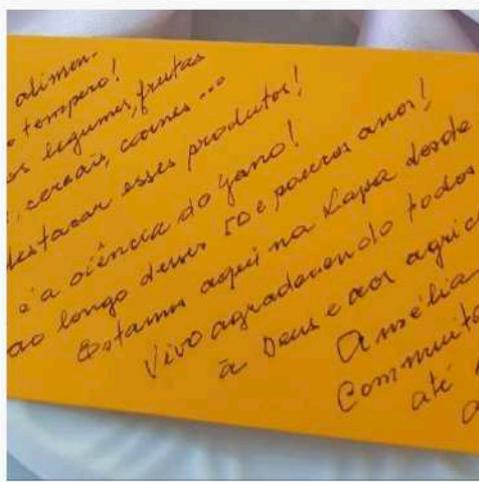 alimen-
tempero!
os legumes, frutas
, cereais, carnes...
destacar esses produtos!
é a ciência do
ao longo desses 50 e poucos anos!
Estamos aqui na Lapa desde
Vivo agradecendo todos
a Deus e aos agric
Amélia
Com muito
até